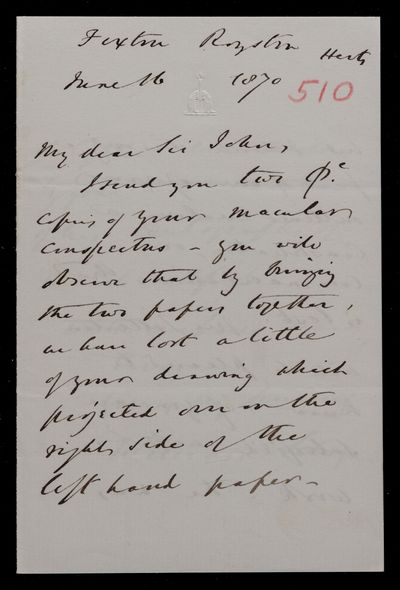 Foxton Royston Herts
June 16 1870
510
My dear Sir John,
I send you two Ph.c
copies of your macular
conspectus - you will
observe that by bringing
the two papers together,
we have lost a little
of your drawing which
projected over on the
right side of the
left hand paper -